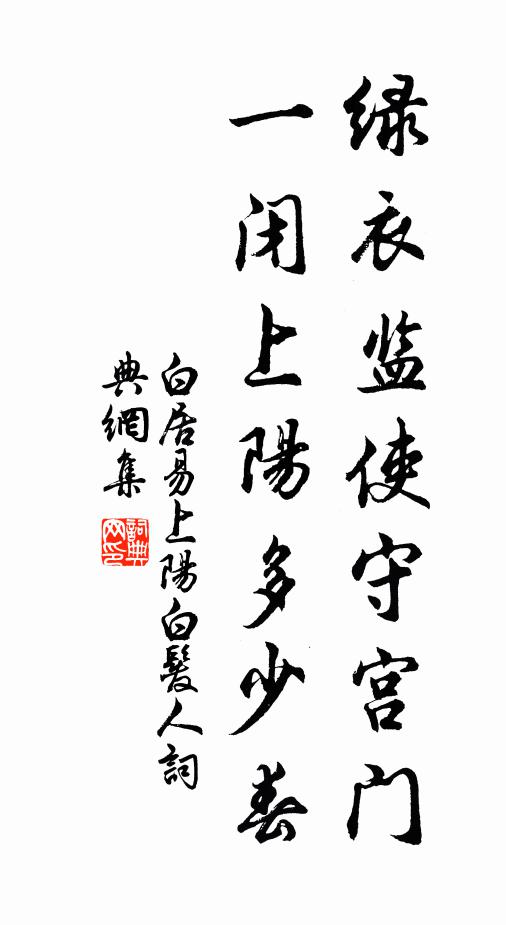 绿衣监使守宫门
一闭上陽多少春
白居易上陽白髮人詞
典網集
詞典网印